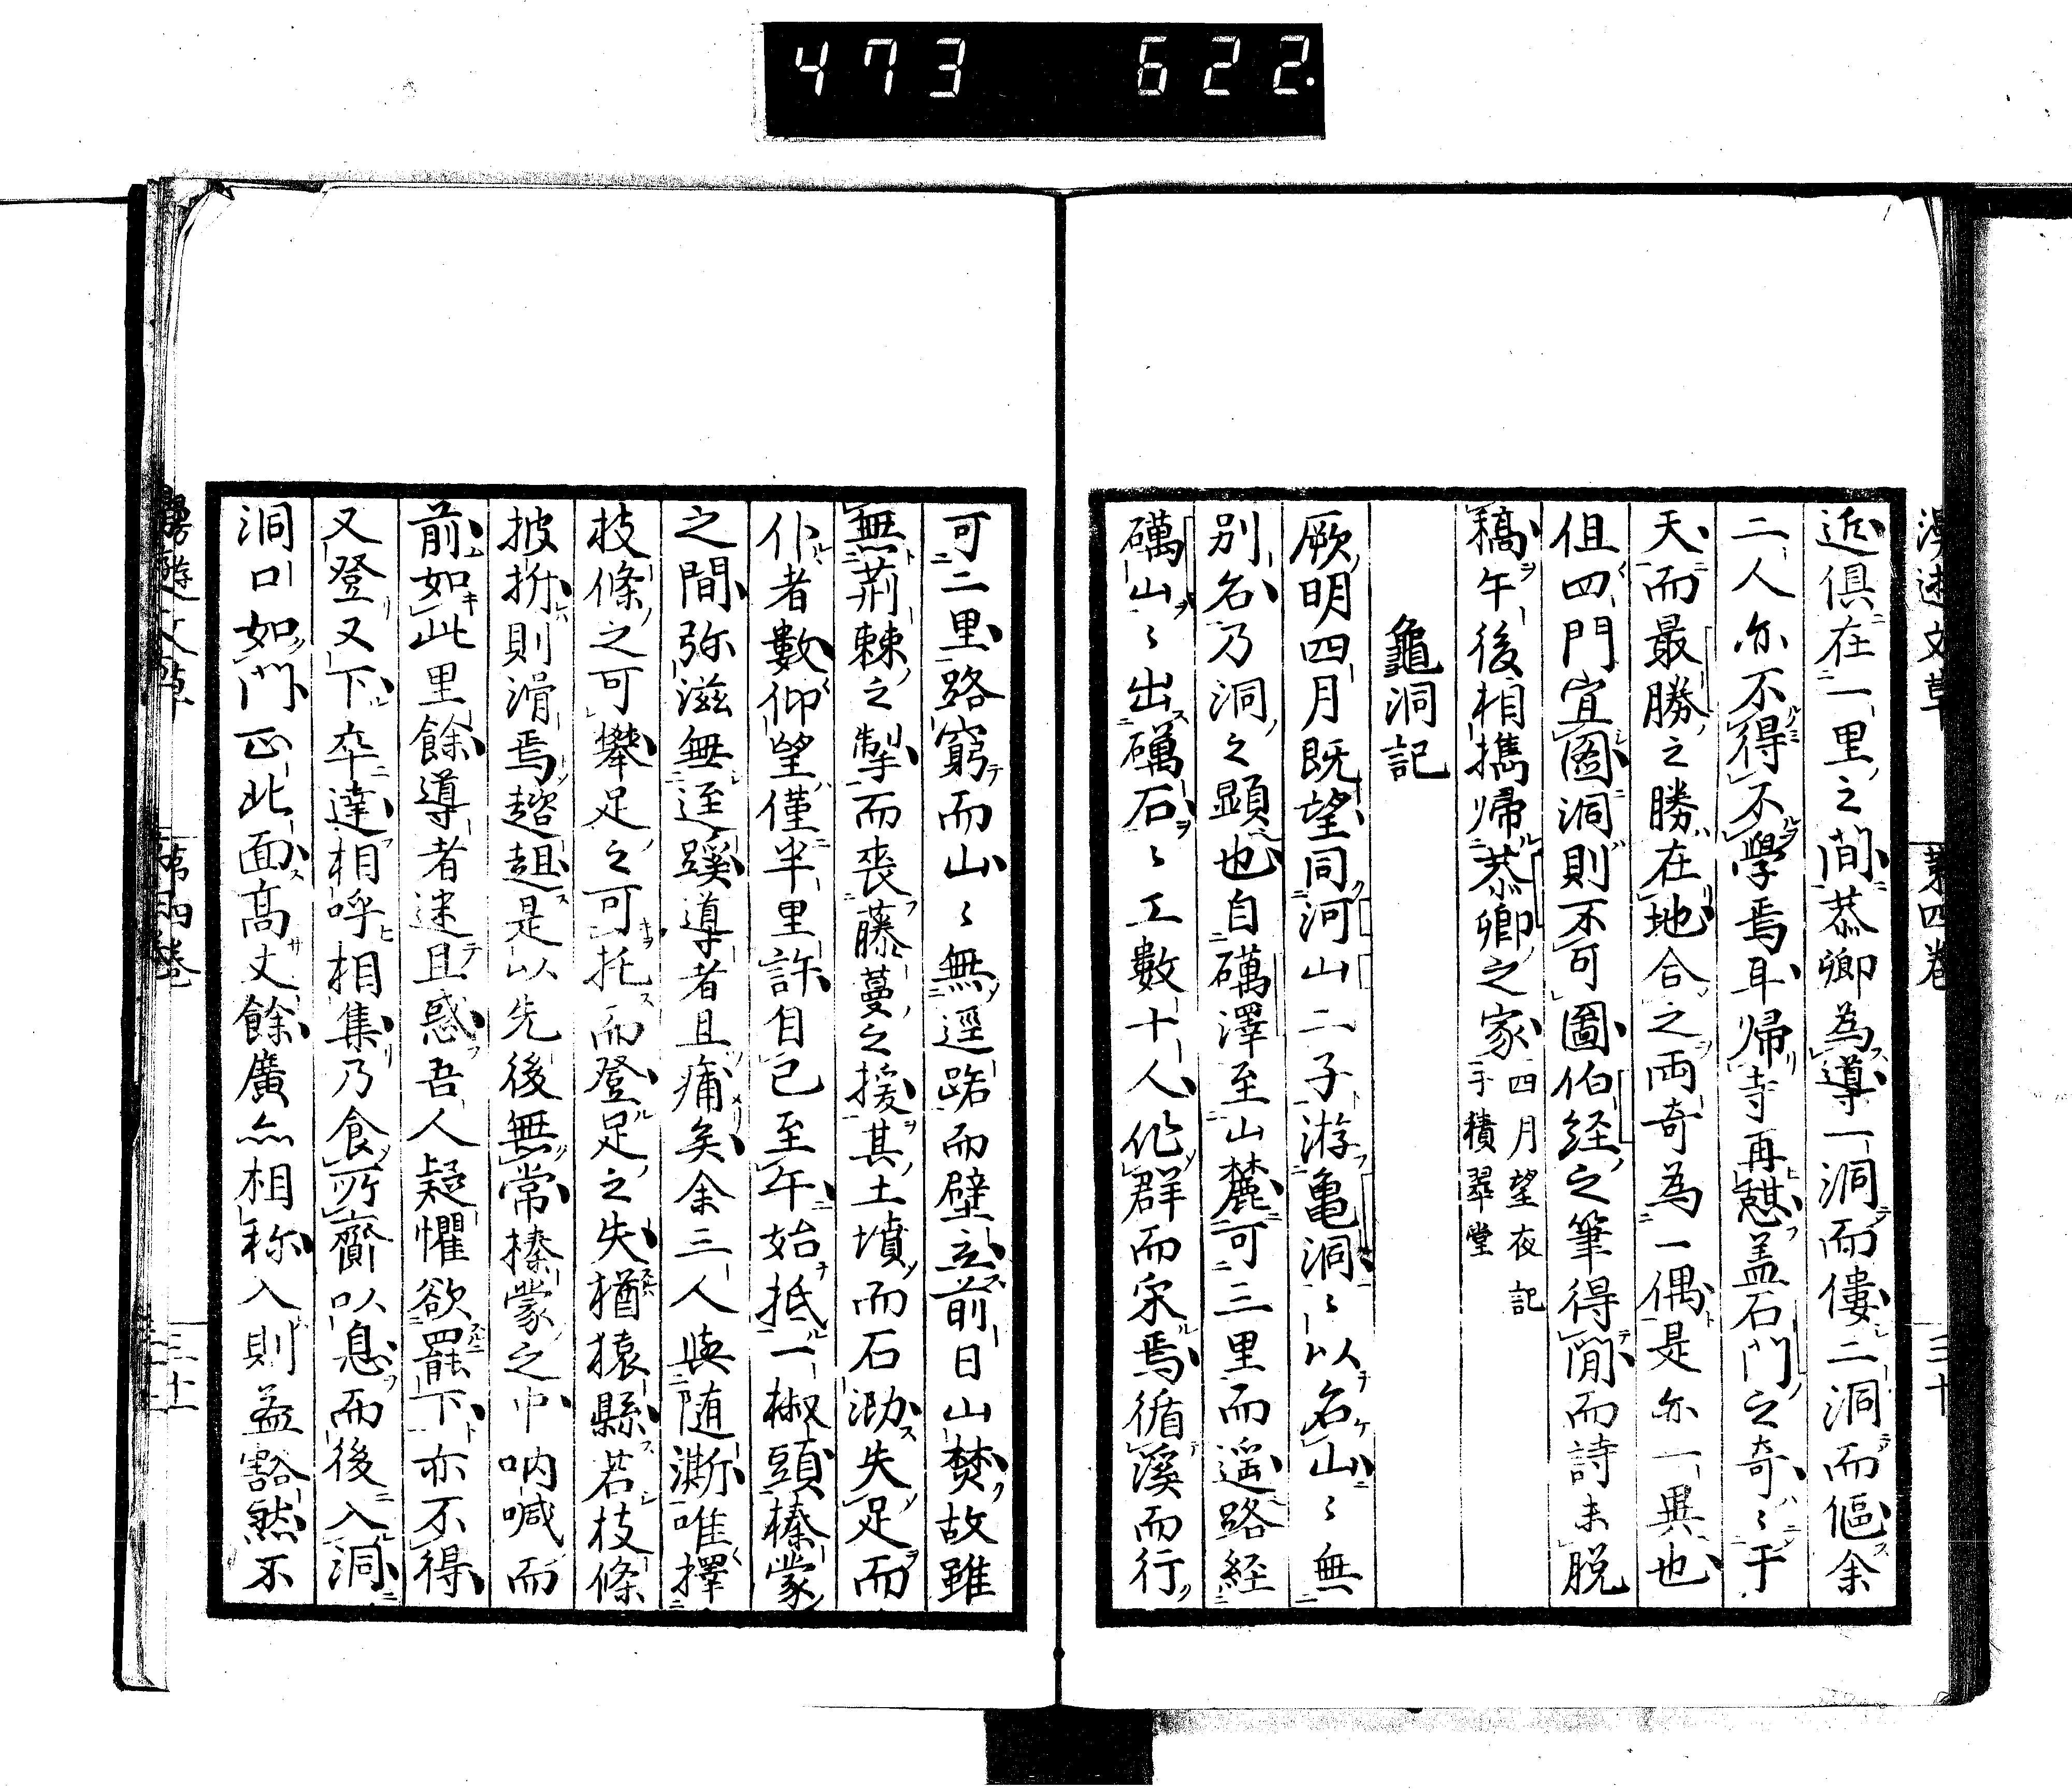 473 622
漫遊文草 第四巻 三十
近俱在一里之間恭卿為導一洞而僂二洞而傴余
二人亦不得不學焉耳帰寺再憇盖石門之奇〻于
天而最勝之勝在地合之両奇為一偶是亦一異也
但四門宜圖洞則不可圖伯経之筆得間而詩未脱
稿午後相携帰恭卿之家
四月望夜記
于積翠堂
龜洞記
厥明四月既望同河山二子游亀洞〻以名山〻無
別名乃洞之顕也自礪澤至山麓可三里而遥路経
礪山〻出礪石〻工數十人作群而宋焉循溪而行
可二里路窮而山〻無逕䟱而壁立前日山焚故雖
無荊棘之掣而喪藤蔓之援其土墳而石泐失足而
仆者數仰望僅半里許自已至午始抵一椒頭榛蒙
之間弥滋無逕蹊導者且痡矣余三人與随澌唯擇
枝條之可攀足之可托而登足之失猶猿縣若枝條
披折則滑焉趦趄是以先後無常榛蒙之中吶喊而
前如此里餘導者迷且惑吾人疑懼欲罷下亦不得
又登又下卒達相呼相集乃食所齎以息而後入洞
洞口如門正北面髙丈餘廣亦相称入則益豁然不
漫遊文草 第四巻 三十一